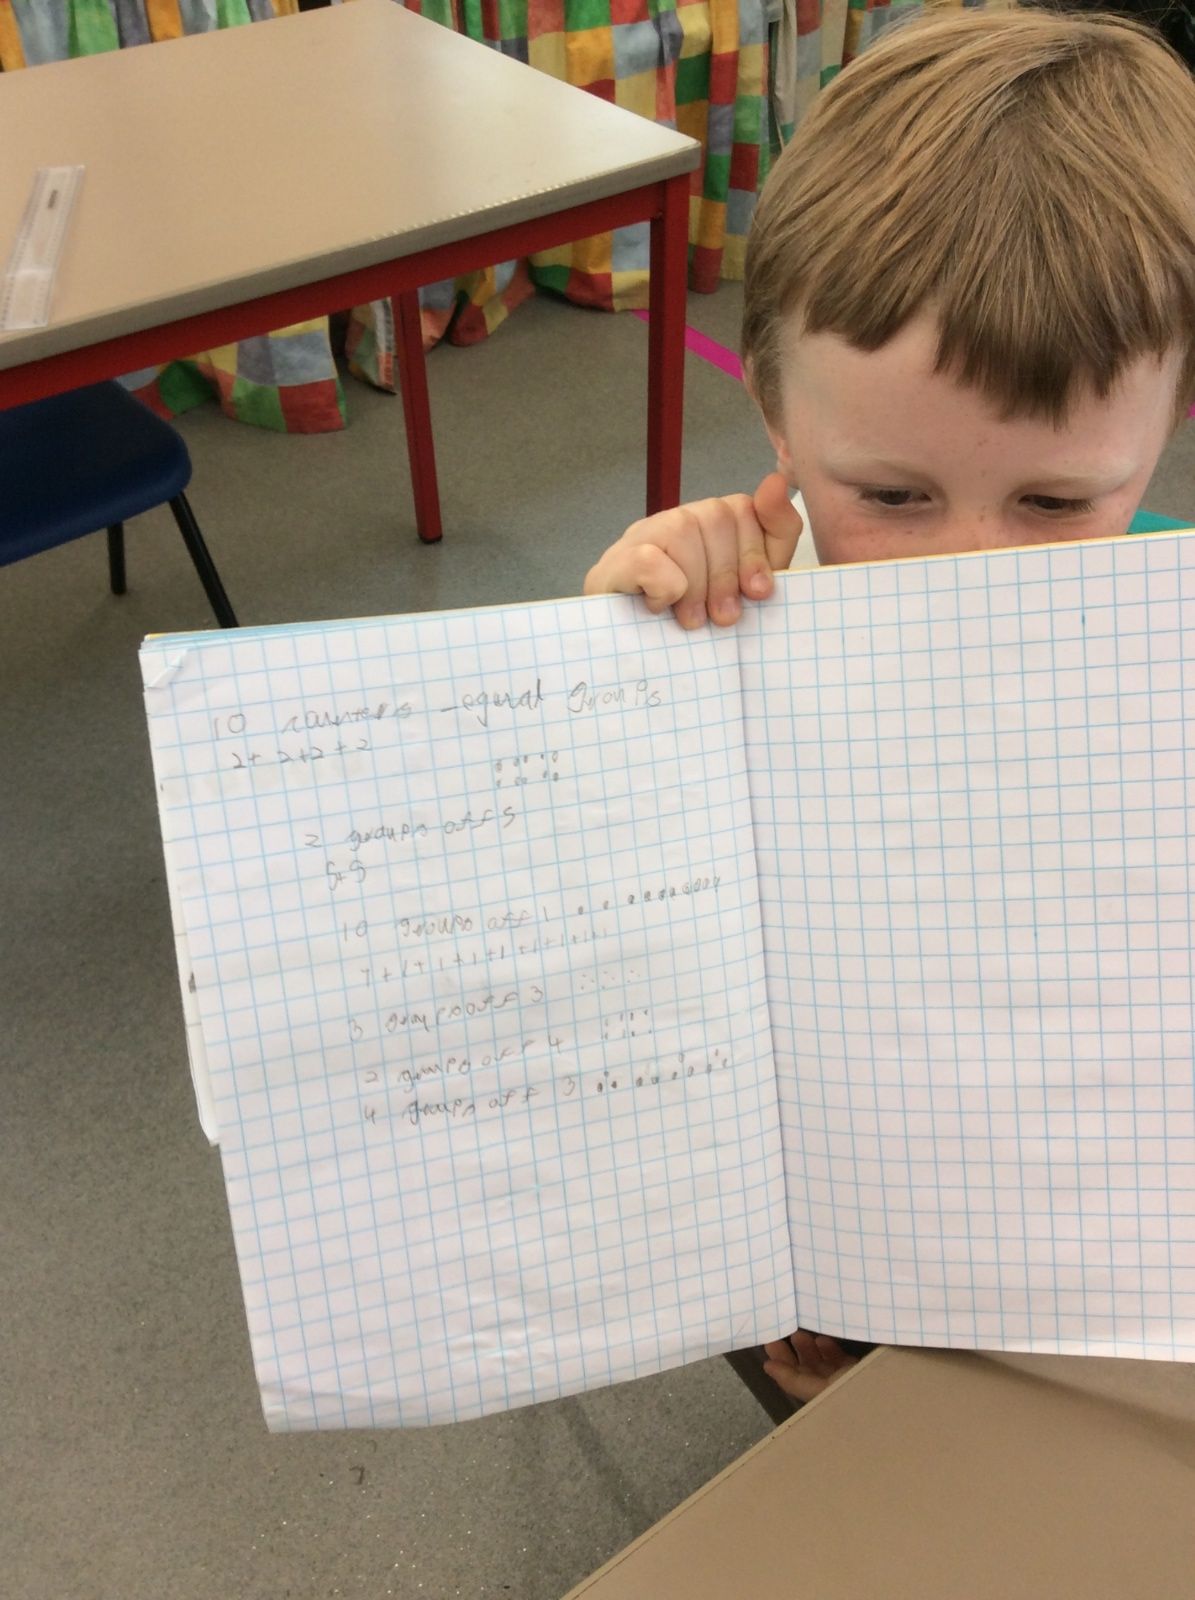 10 counters - equral groups
2+ 2+2+2
2 groups off 5
5+5
10 groups off 1
1+1+1+1+1+1+1+1+1
3 groups off 3
2 groups off 4
4 groups off 3